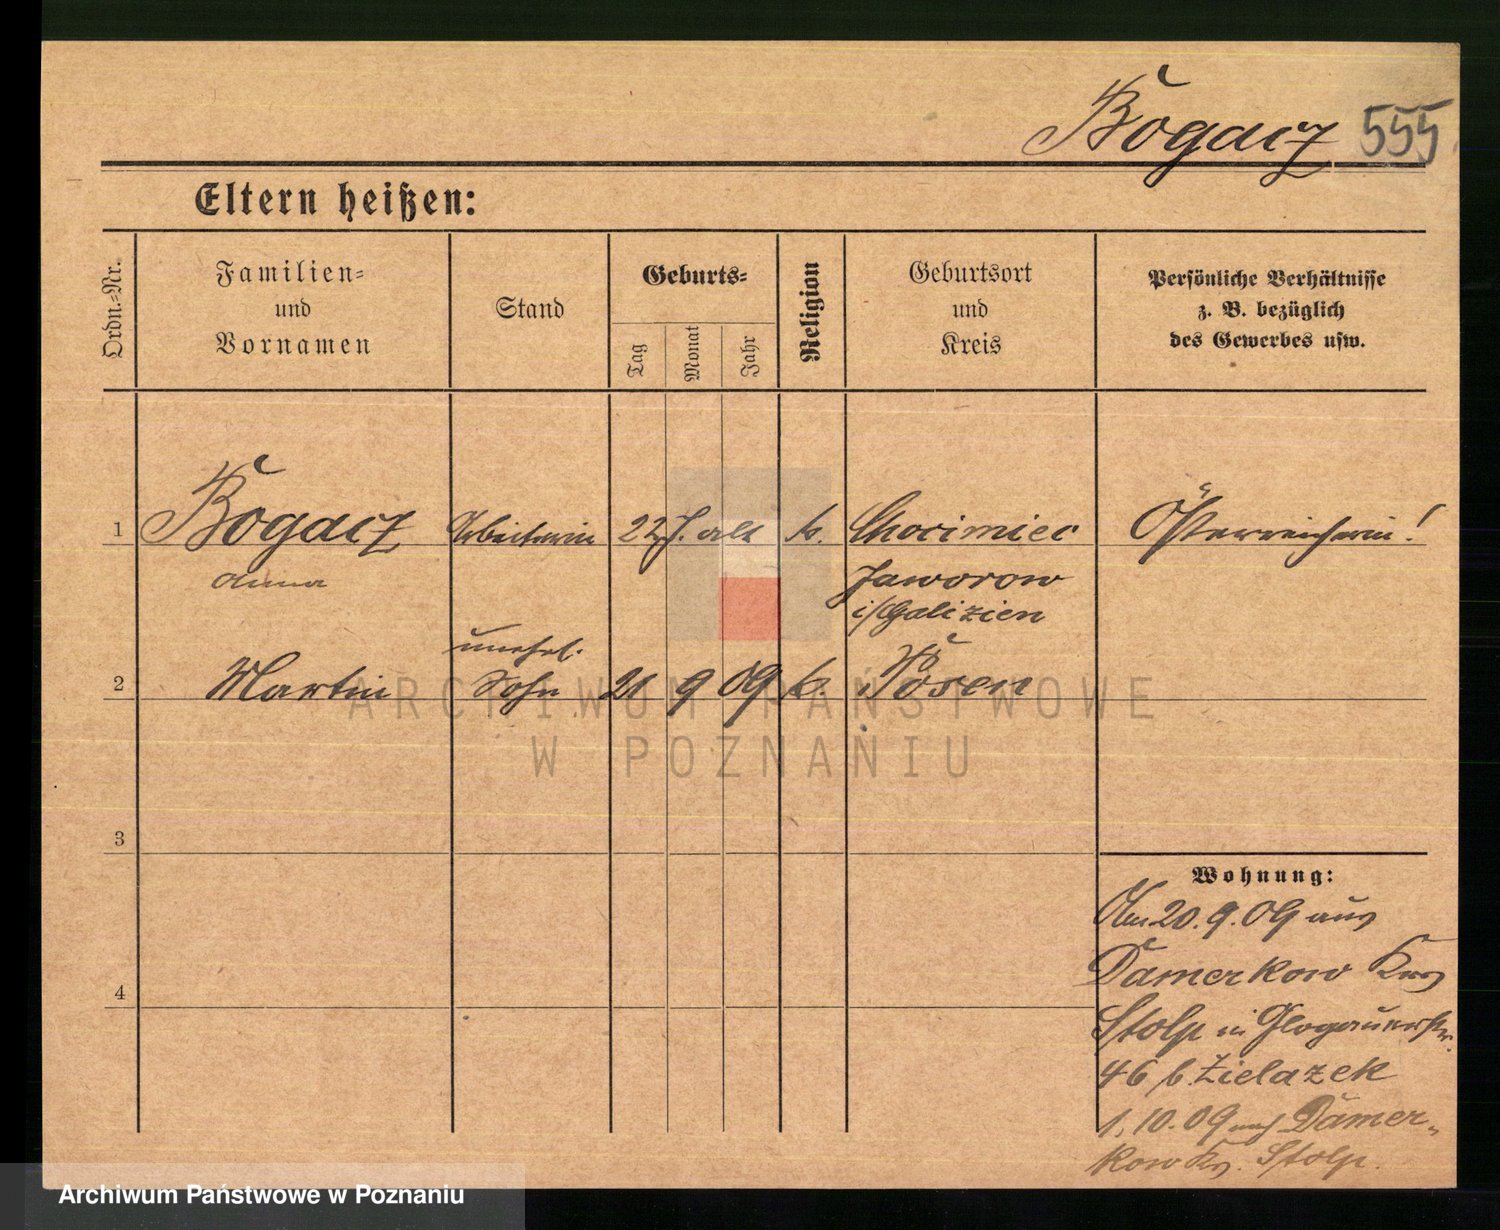 Bogacz 555
Eltern heißen:
Ordn.-Nr.
Familien-
und
Vornamen
Stand
Geburts-
Tag
Monat
Jahr
Religion
Geburtsort
und
Kreis
Persönliche Verhältnisse
z. B. bezüglich
des Gewerbes usw.
1 Bogacz Arbeiterin 22 J. alt k. Chocimiec Österreicherin!
Anna Jaworow
i/Galizien
unehel.
2 Martin Sohn 21 9 09 k. Posen
ARCHIWUM PAŃSTWOWE
W POZNANIU
3
Wohnung:
Am 20.9.09 aus
Damerkow Krs
4
Stolp in Glogauerstr.
46 b. Zielazek
1.10.09 nach Damer-
kow Krs. Stolp.
Archiwum Państwowe w Poznaniu